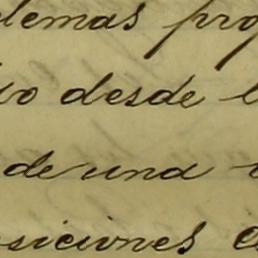 lemas pro
io desde l
de una
siciones e